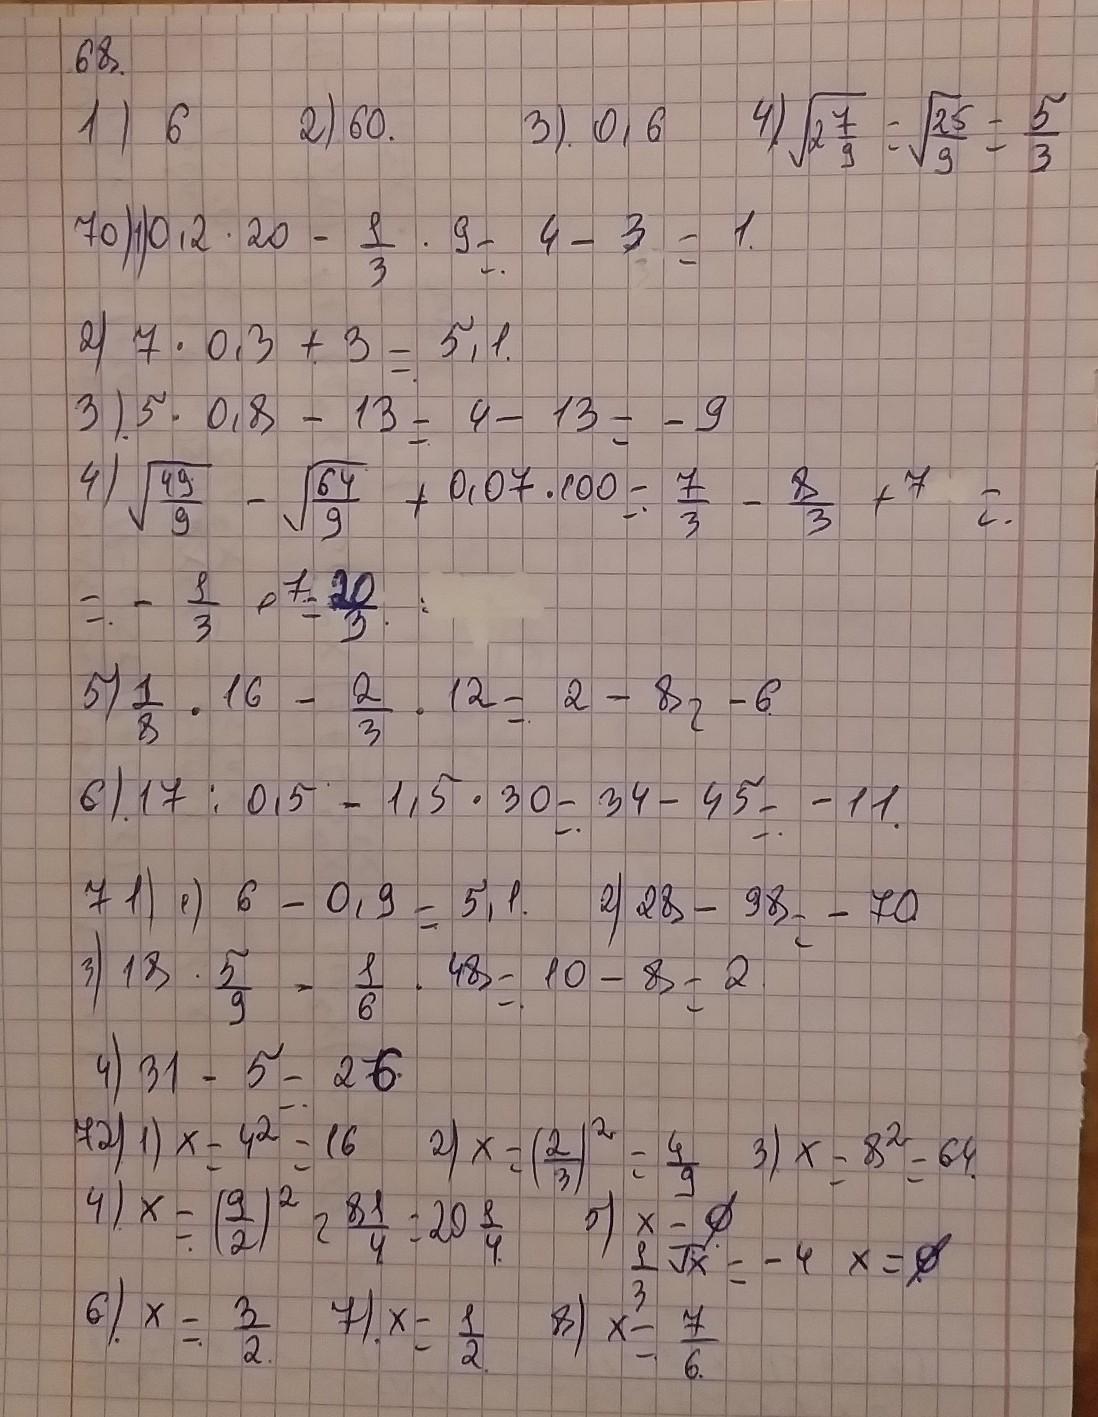 68.
1) 6 2) 60. 3). 0,6 4) √(2 7/9) = √(25/9) = 5/3
70) 1) 0,2 · 20 - 1/3 · 9 = 4 - 3 = 1.
2) 7 · 0,3 + 3 = 5,1.
3). 5 · 0,8 - 13 = 4 - 13 = -9
4) √(49/9) - √(64/9) + 0,07 · 100 = 7/3 - 8/3 + 7 =
= - 1/3 + 7 = 20/3.
5) 1/8 · 16 - 2/3 · 12 = 2 - 8 = -6
6). 17 : 0,5 - 1,5 · 30 = 34 - 45 = -11.
71) 1) 6 - 0,9 = 5,1. 2) 28 - 98 = -70
3) 18 · 5/9 - 1/6 · 48 = 10 - 8 = 2.
4) 31 - 5 = 26
72) 1) x = 4² = 16 2) x = (2/3)² = 4/9 3) x = 8² = 64.
4) x = (9/2)² = 81/4 = 20 1/4 5) x = ∅
1/3 √x = -4 x = ∅
6). x = 3/2. 7). x = 1/2. 8) x = 7/6.